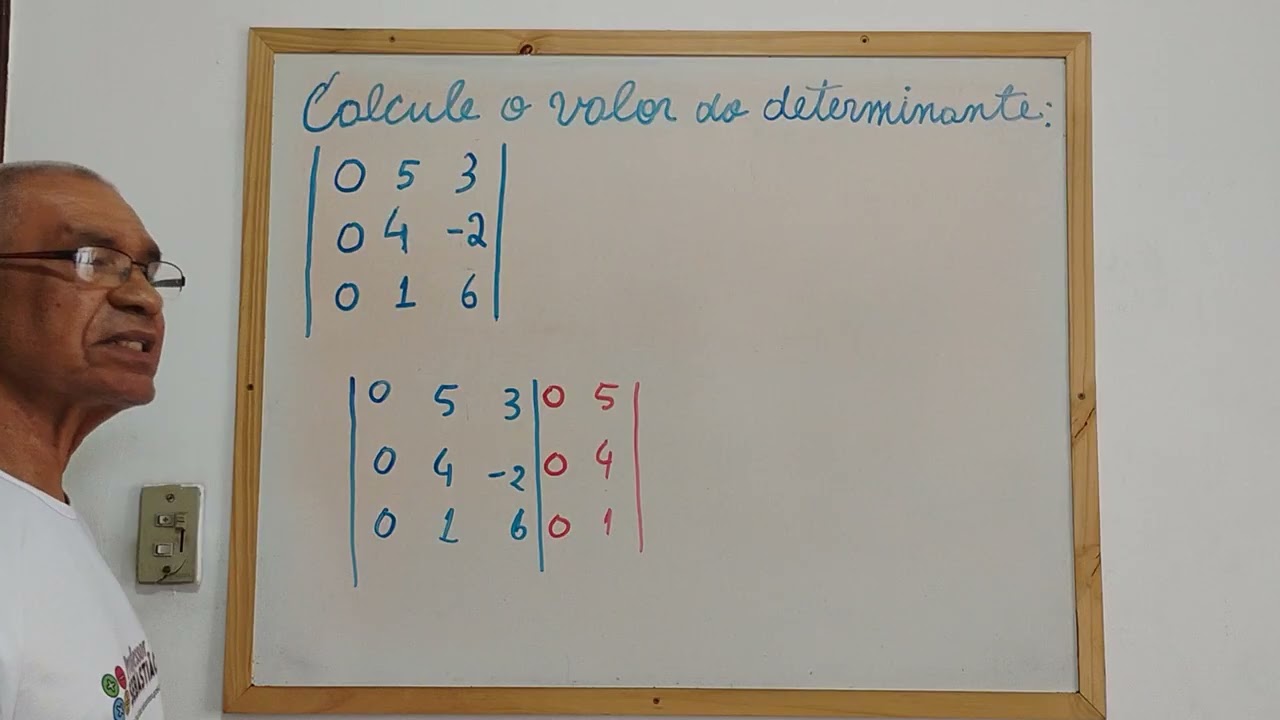 Calcule o valor do determinante:
0 5 3
0 4 -2
0 1 6
0 5 3 0 5
0 4 -2 0 4
0 1 6 0 1
Professor
SEBASTIÃO